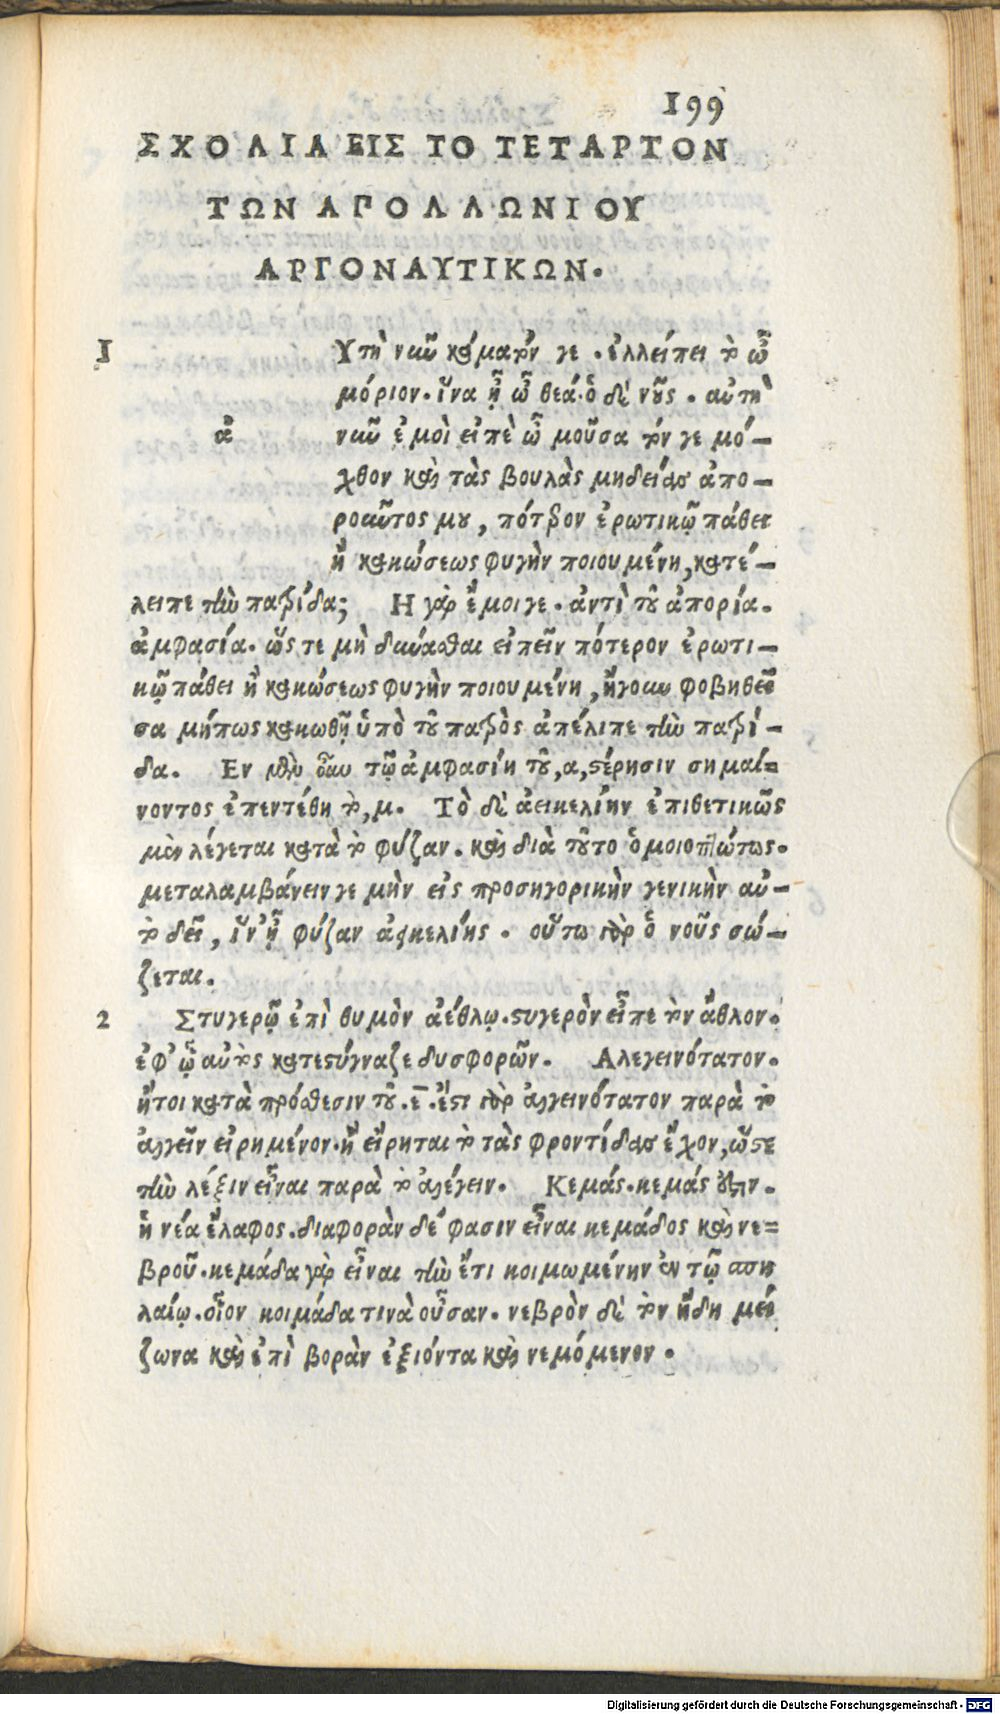 199
ΣΧΟΛΙΑ ΕΙΣ ΤΟ ΤΕΤΑΡΤΟΝ
ΤΩΝ ΑΓΟΛΛΩΝΙΟΥ
ΑΡΓΟΝΑΥΤΙΚΩΝ.
1 Υτὴ νῦν κάματόν γε . ἐλλείπει τὸ ὦ
μόριον. ἵνα ᾖ ὦ θεά. ὁ δὲ νοῦς . αὐτὴ
ἀ νῦν ἐμοὶ εἰπὲ ὦ μοῦσα τόν γε μό-
χθον καὶ τὰς βουλὰς μηδείας ἀπο-
ροῦντος μου, πότερον ἐρωτικῷ πάθει
ἢ κακώσεως φυγὴν ποιουμένη, κατέ-
λειπε τὴν πατρίδα; Η γὰρ ἔμοιγε . ἀντὶ τοῦ ἀπορία.
ἀμφασία. ὥς τε μὴ δύνασθαι εἰπεῖν πότερον ἐρωτι-
κῷ πάθει ἢ κακώσεως φυγὴν ποιουμένη, ἤγουν φοβηθεῖ
σα μήπως κακωθῇ ὑπὸ τοῦ πατρὸς ἀπέλιπε τὴν πατρί-
δα. Εν μὲν οὖν τῷ ἀμφασίη τοῦ, α, στέρησιν σημαί=
νοντος ἐπεντέθη τὸ, μ. Τὸ δὲ ἀεικελίην ἐπιθετικῶς
μὲν λέγεται κατὰ τὸ φύζαν. καὶ διὰ τοῦτο ὁμοιοπτώτως.
μεταλαμβάνειν γε μὴν εἰς προσηγορικὴν γενικὴν αὐ-
τὸ δεῖ, ἵν' ᾖ φύζαν ἀεικελίης . οὕτω γὰρ ὁ νοῦς σώ-
ζεται.
2 Στυγερῷ ἐπὶ θυμὸν ἀέθλῳ. στυγερὸν εἶπε τὸν ἆθλον.
ἐφ' ᾧ αὐτὸς κατεστύγναζε δυσφορῶν. Αλεγεινότατον.
ἤτοι κατὰ πρόσθεσιν τοῦ .ε̅. ἔστι γὰρ ἀλγεινότατον παρὰ τὸ
ἀλγεῖν εἰρημένον. ἢ εἴρηται τὸ τὰς φροντίδας ἔχον, ὥστε
τὴν λέξιν εἶναι παρὰ τὸ ἀλέγειν. Κεμάς. κεμάς ἐστιν.
ἡ νέα ἔλαφος. διαφορὰν δέ φασιν εἶναι κεμάδος καὶ νε=
βροῦ. κεμάδα γὰρ εἶναι τὴν ἔτι κοιμωμένην ἐν τῷ σπη
λαίῳ. οἷον κοιμάδα τινὰ οὖσαν. νεβρὸν δὲ τὸν ἤδη μεί
ζωνα καὶ ἐπὶ βορὰν ἐξιόντα καὶ νεμόμενον.
Digitalisierung gefördert durch die Deutsche Forschungsgemeinschaft - DFG